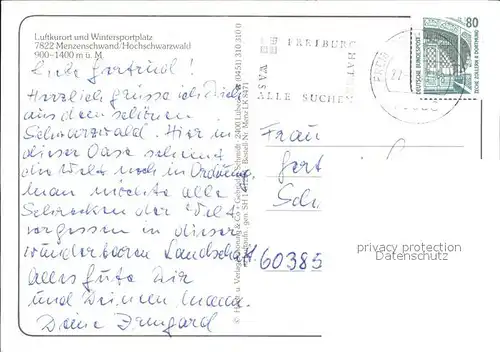 Luftkurort und Wintersportplatz
7822 Menzenschwand/Hochschwarzwald
900-1400 m ü. M.
Liebe Gertrud!
Herzlich grüsse ich Dich
aus dem schönen
Schwarzwald. Hier in
dieser Oase scheint
die Welt noch in Ordnung.
Man möchte alle
Schrecken der Welt
vergessen in dieser
wunderbaren Landschaft.
Alles Gute Dir
und Deinen
Deine Irmgard
FREIBURG
ALLE SUCHEN
80
DEUTSCHE BUNDESPOST
ZECHE ZOLLERN II DORTMUND
Frau
Gert
Sch
60385
privacy protection
Datenschutz